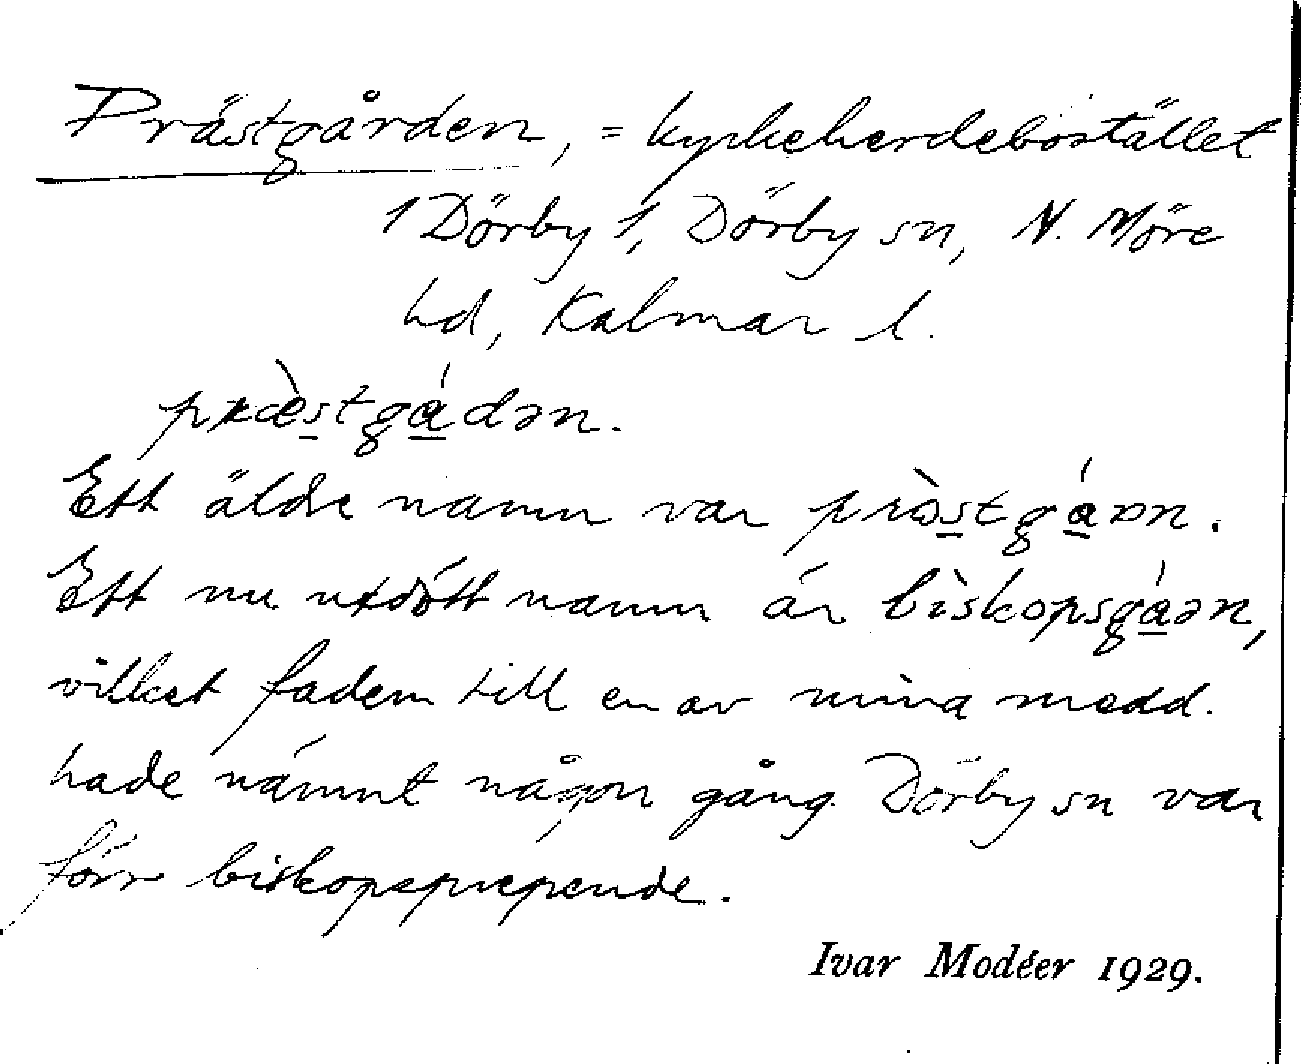 Prästgården, = kyrkoherdebostället
1 Dörby 1, Dörby sn, N. Möre
hd, Kalmar l.
præ̀stgádən.
Ett äldre namn var prò̀stgáən.
Ett nu utdött namn är bìskopsgáən,
vilket fadern till en av mina medd.
hade nämnt någon gång. Dörby sn var
förr biskopsprepende.
Ivar Modéer 1929.